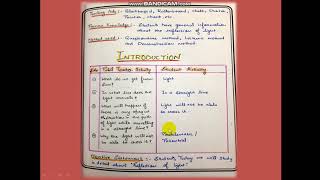 WWW.BANDICAM.COM
Teaching Aids:- Blackboard, Rollerboard, chalk, Duster,
Pointer, chart, etc
Previous Knowledge:- Students have general information
about the reflection of light.
Method used:- Questionnaire method, lecture method
and Demonstration method.
INTRODUCTION
Pupil Teacher Activity Student Activity
What do we get from Sun? Light
In what line does the light travels? In a straight line
What will happen if there is any opaque
in the path of light while travelling in a straight line? Light will not be able to cross it.
Why the light will not be able to cross it? Problematic /
Potential
Students, Today we will study
in detail about "Reflection of light".